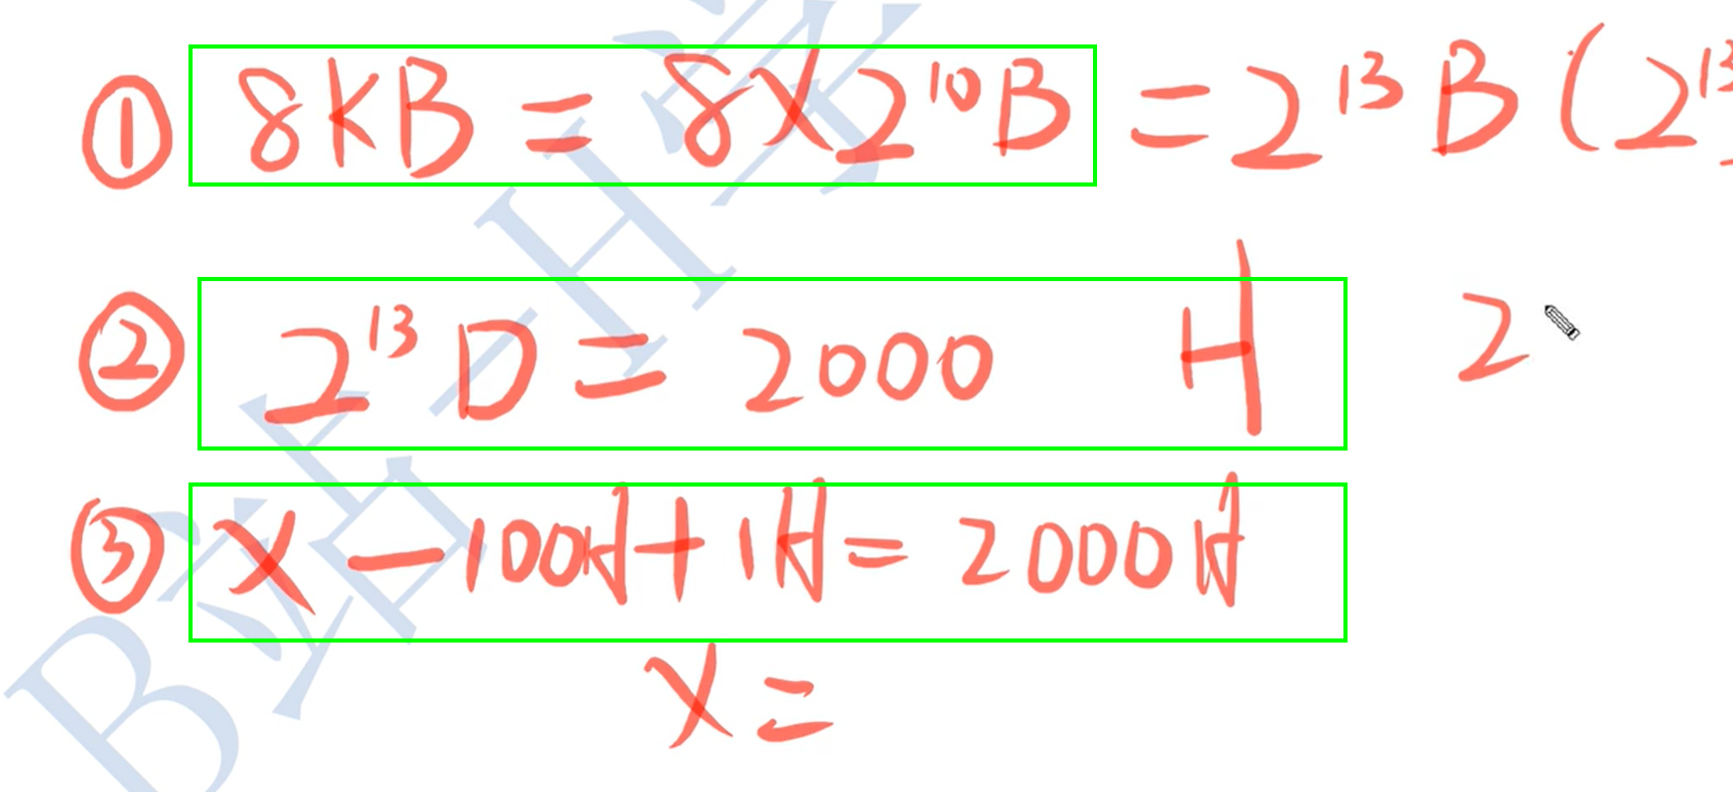 ① 8KB = 8X2¹⁰B = 2¹³B (2¹³
② 2¹³D = 2000 H 2
③ X - 100H + 1H = 2000H
X =
B站